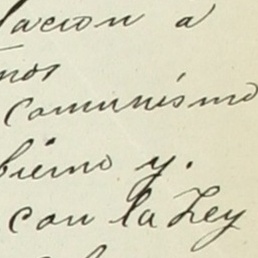 lacion a
nos
comunismo
bierno y.
con la Ley